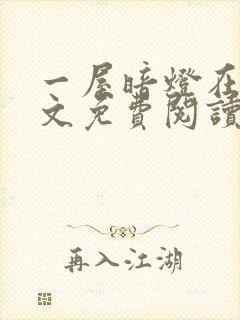 一屋暗燈在
文免費閱讀
再入江湖